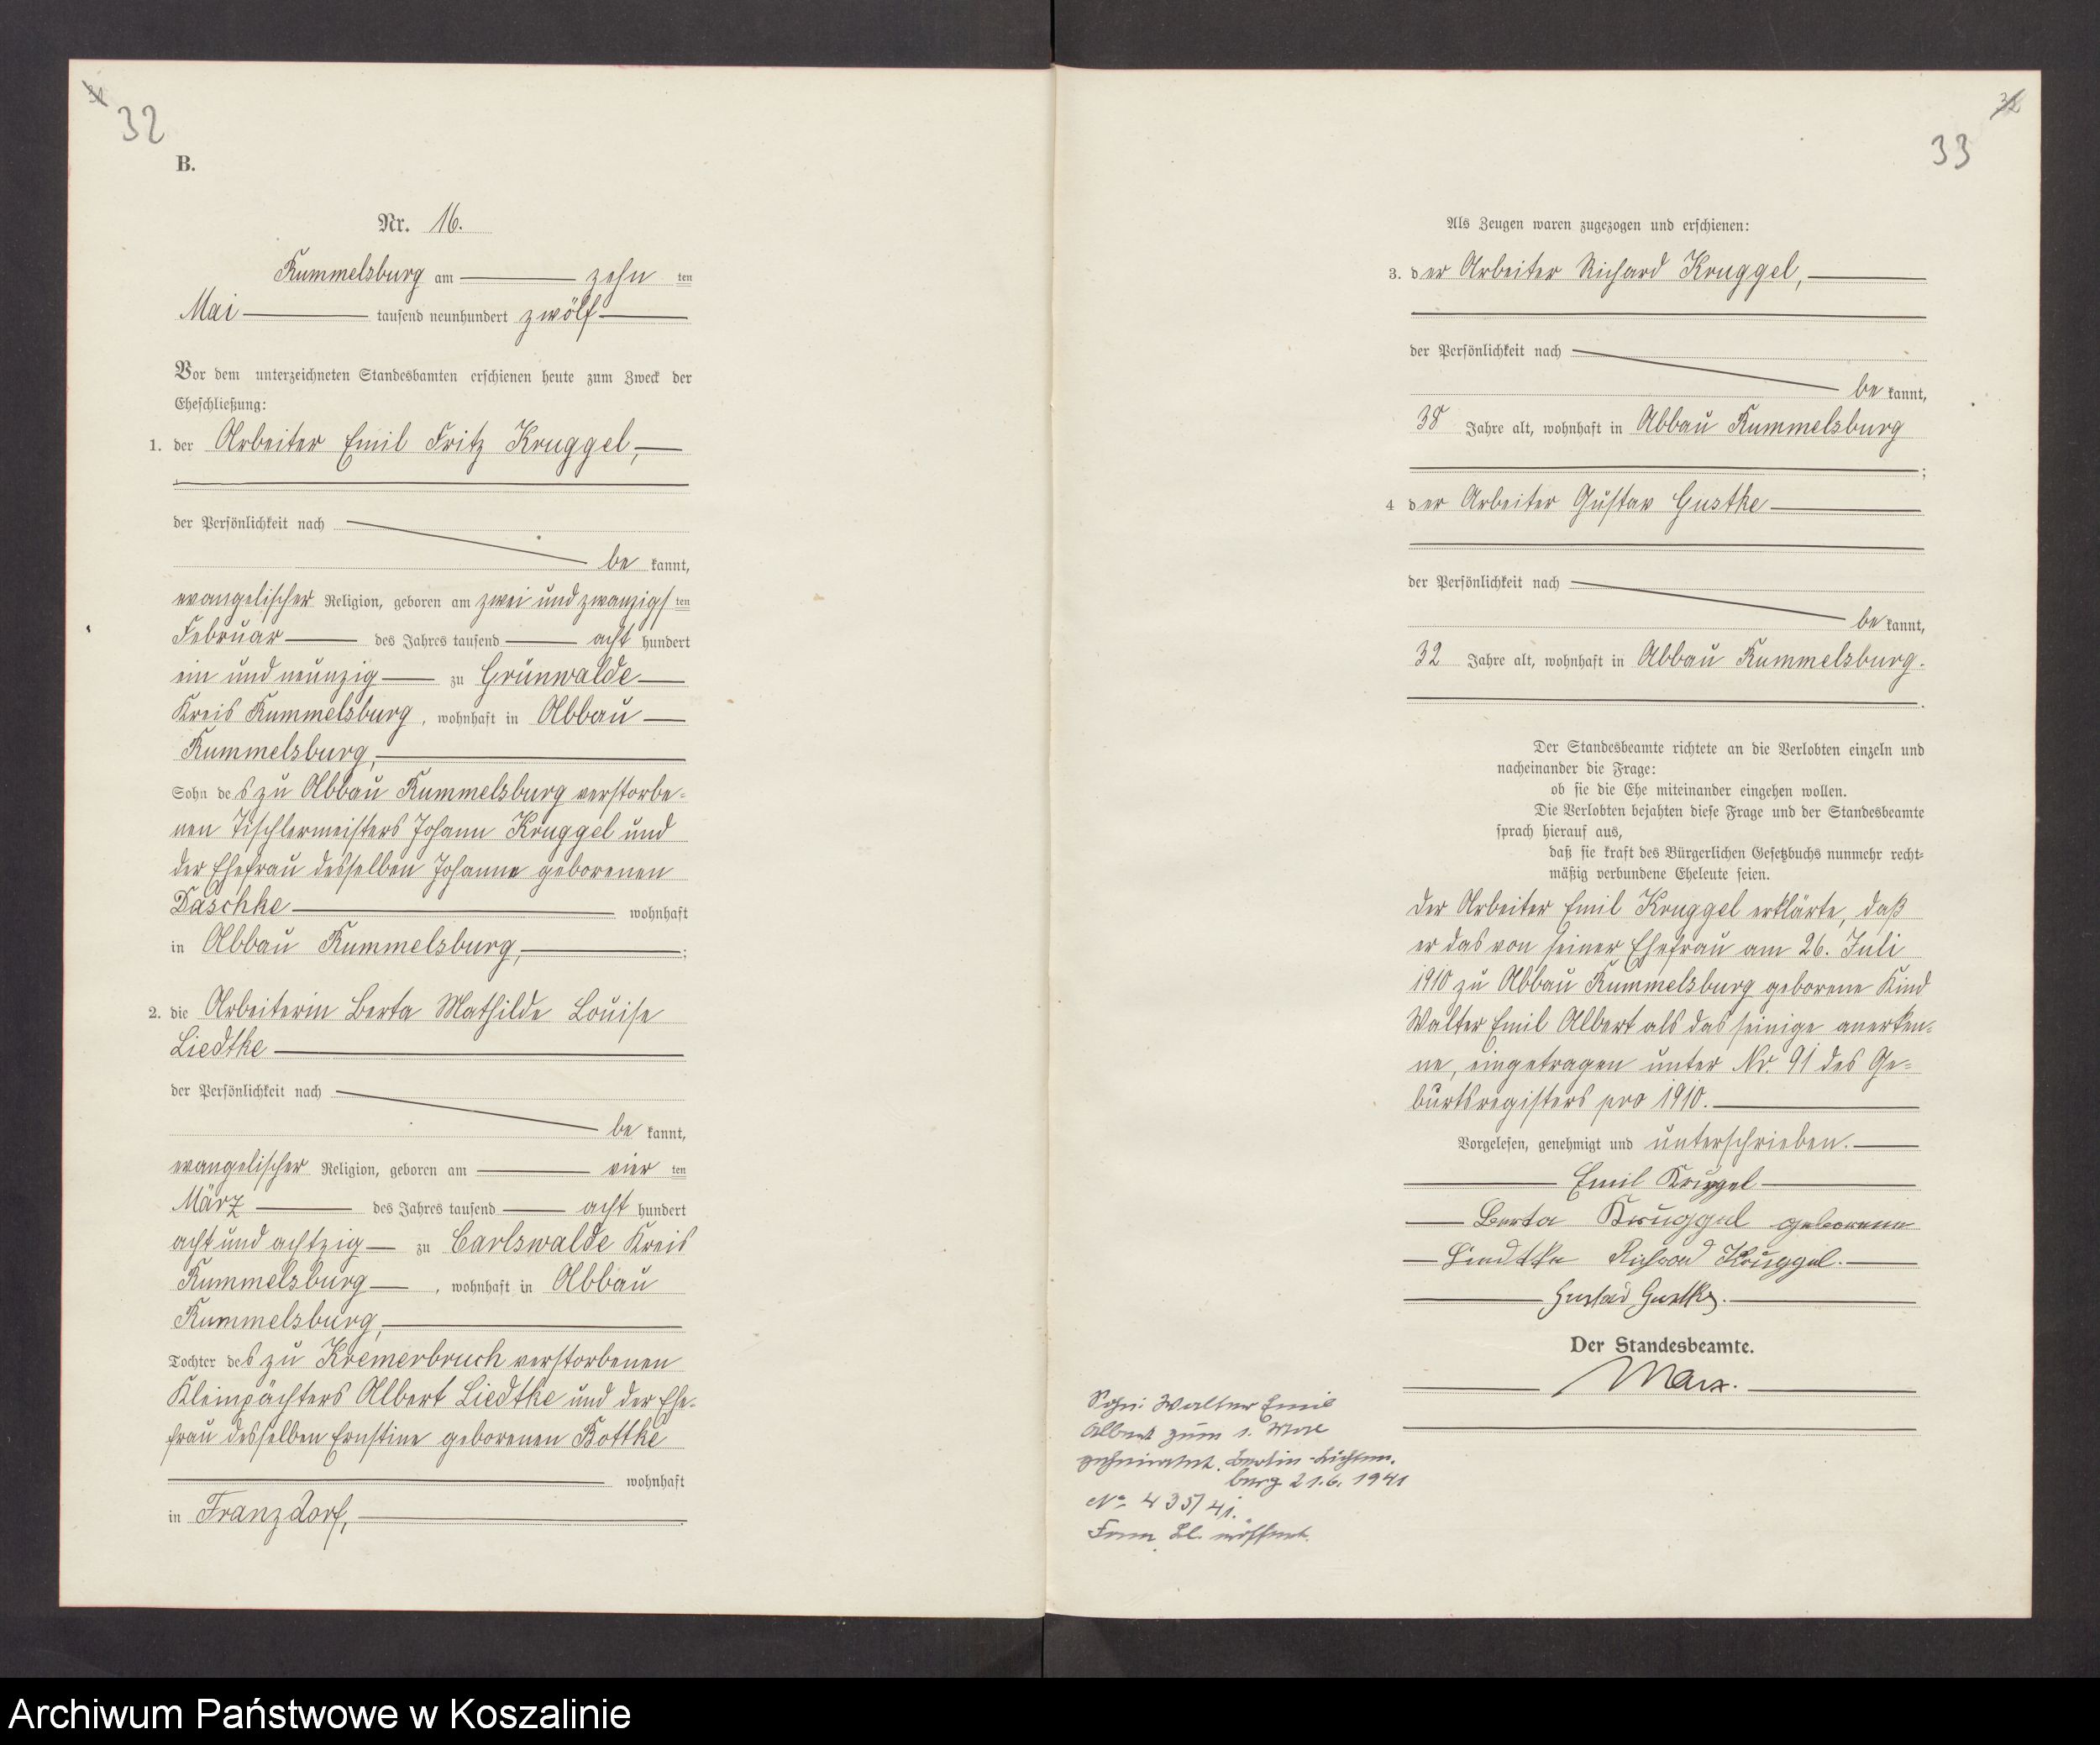 32
B.
Nr. 16.
Rummelsburg am zehn ten
Mai tausend neunhundert zwölf
Vor dem unterzeichneten Standesbamten erschienen heute zum Zweck der
Eheschließung:
1. der Arbeiter Emil Fritz Kruggel,
der Persönlichkeit nach
be kannt,
evangelischer Religion, geboren am zwei und zwanzigs ten
Februar des Jahres tausend acht hundert
ein und neunzig zu Grünwalde
Kreis Rummelsburg, wohnhaft in Abbau
Rummelsburg,
Sohn des zu Abbau Rummelsburg verstorbe-
nen Tischlermeisters Johann Kruggel und
der Ehefrau desselben Johanne geborenen
Daschke wohnhaft
in Abbau Rummelsburg, ;
2. die Arbeiterin Berta Mathilde Louise
Liedtke
der Persönlichkeit nach
be kannt,
evangelischer Religion, geboren am vier ten
März des Jahres tausend acht hundert
acht und achtzig zu Carlswalde Kreis
Rummelsburg, wohnhaft in Abbau
Rummelsburg,
Tochter des zu Kremerbruch verstorbenen
Kleinpächters Albert Liedtke und der Ehe-
frau desselben Ernstine geborenen Bottke
wohnhaft
in Franzdorf,
33
Als Zeugen waren zugezogen und erschienen:
3. der Arbeiter Richard Kruggel,
der Persönlichkeit nach
be kannt,
38 Jahre alt, wohnhaft in Abbau Rummelsburg
;
4 der Arbeiter Gustav Gustke
der Persönlichkeit nach
be kannt,
32 Jahre alt, wohnhaft in Abbau Rummelsburg.
Der Standesbeamte richtete an die Verlobten einzeln und
nacheinander die Frage:
ob sie die Ehe miteinander eingehen wollen.
Die Verlobten bejahten diese Frage und der Standesbeamte
sprach hierauf aus,
daß sie kraft des Bürgerlichen Gesetzbuchs nunmehr recht-
mäßig verbundene Eheleute seien.
Der Arbeiter Emil Kruggel erklärte, daß
er das von seiner Ehefrau am 26. Juli
1910 zu Abbau Rummelsburg geborene Kind
Walter Emil Albert als das seinige anerken-
ne, eingetragen unter Nr. 91 des Ge-
burtsregisters pro 1910.
Vorgelesen, genehmigt und unterschrieben.
Emil Kruggel
Berta Kruggel geborene
Liedtke Richard Kruggel.
Gustav Gustke.
Der Standesbeamte.
Marx.
Sohn: Walter Emil
Albert zum 1. Male
geheiratet. Berlin-Lichten-
berg 21.6.1941
No 435/41.
Fam. Bl. eröffnet.
Archiwum Państwowe w Koszalinie